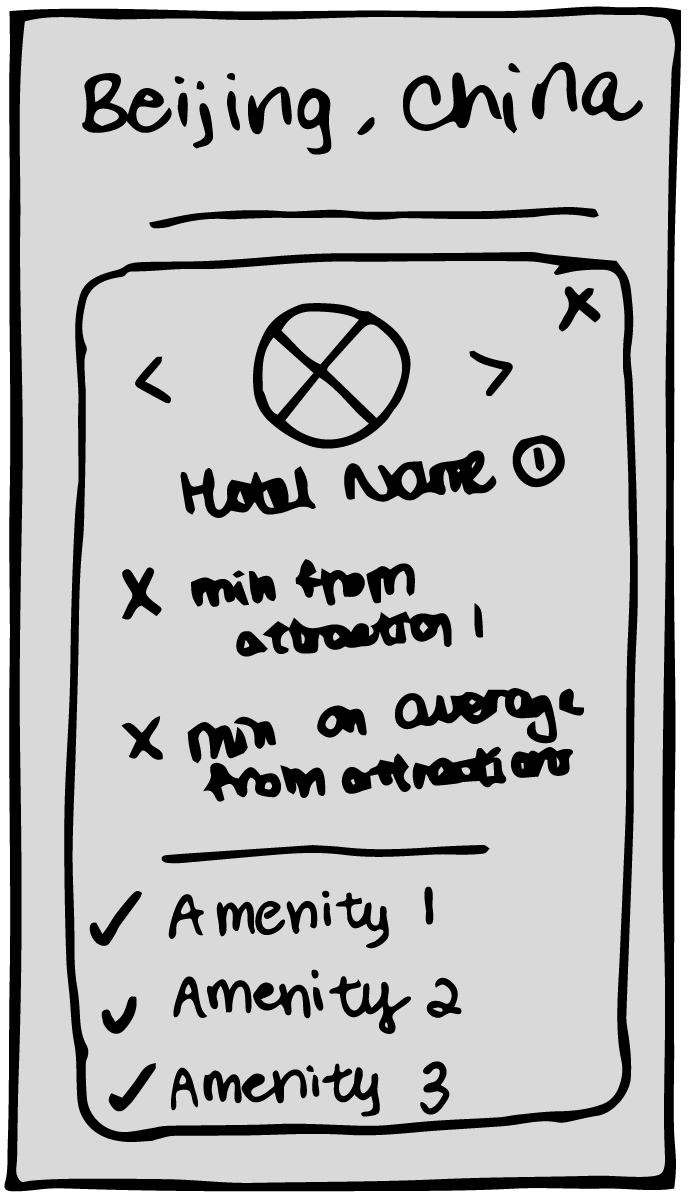 Beijing, China
X
< >
Hotel Name ①
X min from
attraction 1
X min on average
from attractions
✓ Amenity 1
✓ Amenity 2
✓ Amenity 3